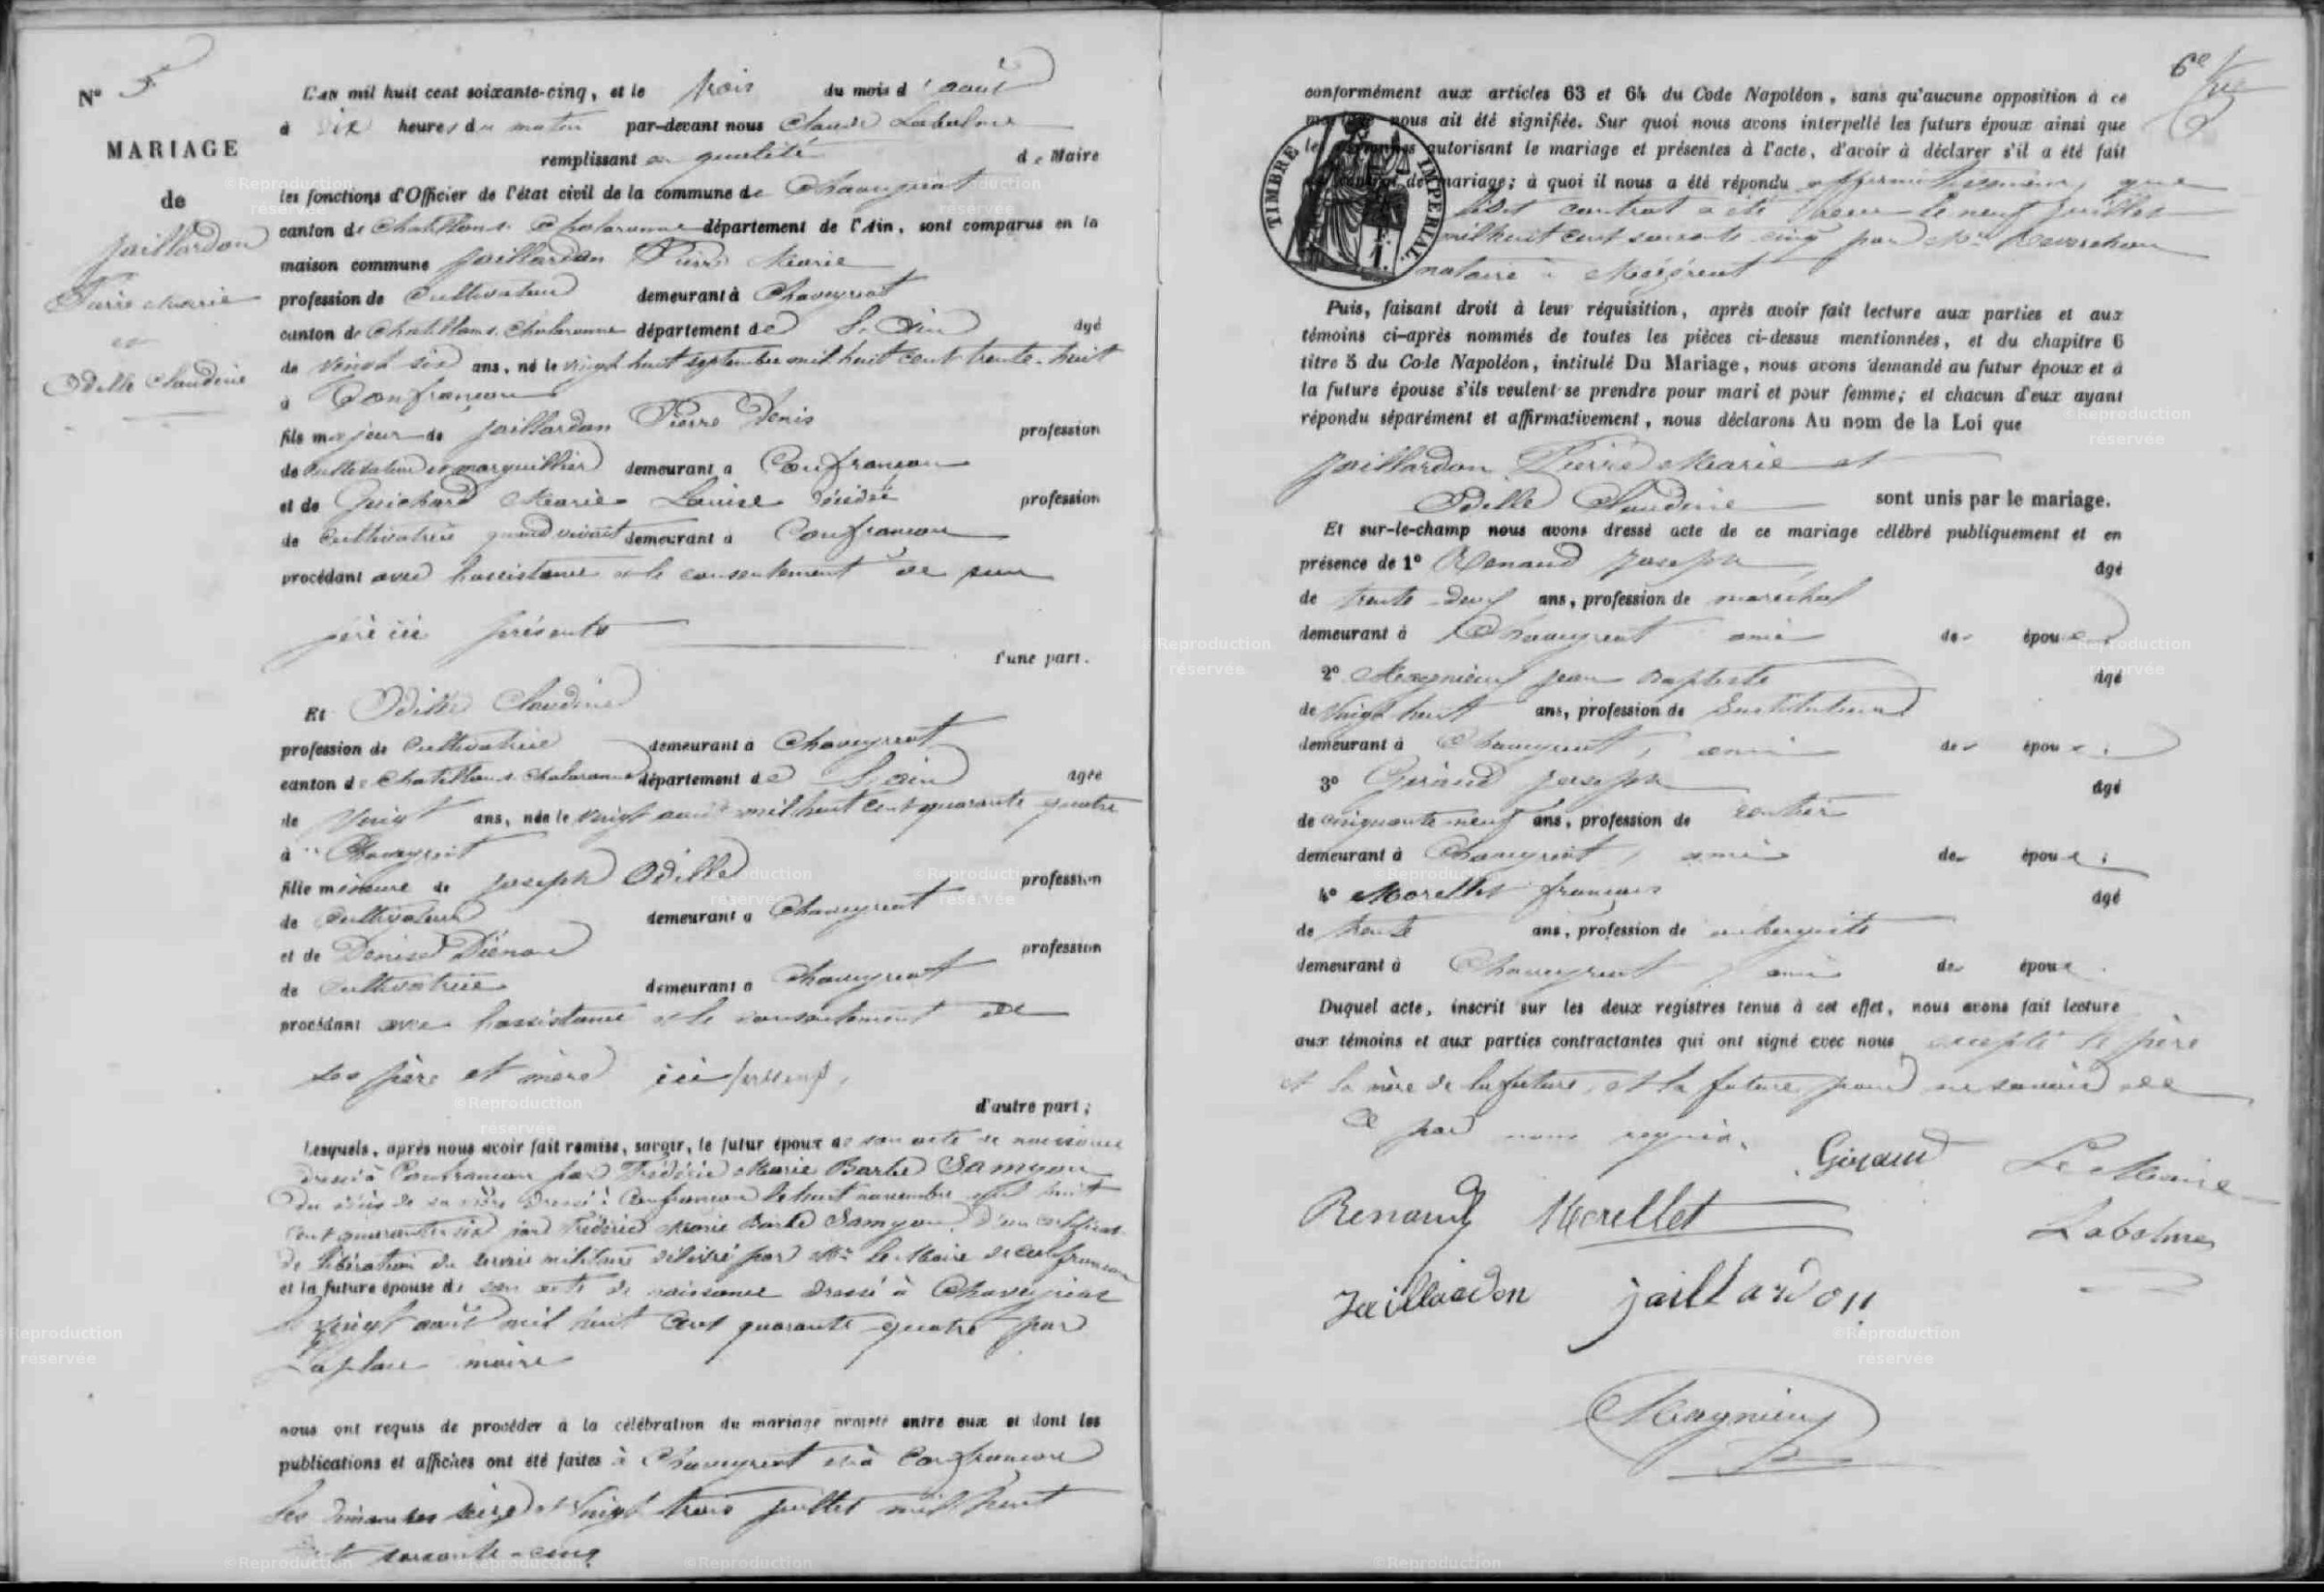 N° 5
MARIAGE
de
Jaillardon
Pierre Marie
et
Odille Claudine
L'an mil huit cent soixante-cinq, et le trois du mois d'août
à dix heures du matin par-devant nous Claude Labalme
remplissant en qualité de Maire
les fonctions d'Officier de l'état civil de la commune de Chaveyriat
canton de Chatillon s. Chalaronne département de l'Ain, sont comparus en la
maison commune Jaillardon Pierre Marie
profession de Cultivateur demeurant à Chaveyriat
canton de Chatillon s. Chalaronne département de L'Ain âgé
de vingt six ans, né le vingt huit septembre mil huit cent trente-huit
à Confrançon
fils majeur de Jaillardon Pierre Denis profession
de cultivateur et marguillier demeurant à Confrançon
et de Guichard Marie Louise décédée profession
de Cultivatrice quand vivait demeurant à Confrançon
procédant avec l'assistance et le consentement de son
père ici présent
d'une part.
Et Odille Claudine
profession de Cultivatrice demeurant à Chaveyriat
canton de Chatillon s. Chalaronne département de L'Ain âgée
de vingt ans, née le vingt août mil huit cent quarante quatre
à Chaveyriat
fille mineure de Joseph Odille profession
de Cultivateur demeurant à Chaveyriat
et de Denise Diénon profession
de Cultivatrice demeurant à Chaveyriat
procédant avec l'assistance et le consentement de
ses père et mère ici présents,
d'autre part;
Lesquels, après nous avoir fait remise, savoir, le futur époux de son acte de naissance
dressé à Confrançon par Frédéric Marie Barbe Samyon
du décès de sa mère dressé à Confrançon le huit novembre mil huit
cent quarante six par Frédéric Marie Barbe Samyon, d'un certificat
de libération du service militaire délivré par Mr le Maire de Confrançon
et la future épouse de son acte de naissance dressé à Chaveyriat
le vingt août mil huit cent quarante quatre par
Laplace maire
nous ont requis de procéder à la célébration du mariage projeté entre eux et dont les
publications et affiches ont été faites à Chaveyriat et à Confrançon
les dimanches seize et vingt trois juillet mil huit
cent soixante-cinq
6e
conformément aux articles 63 et 64 du Code Napoléon, sans qu'aucune opposition à ce
mariage nous ait été signifiée. Sur quoi nous avons interpellé les futurs époux ainsi que
les personnes autorisant le mariage et présentes à l'acte, d'avoir à déclarer s'il a été fait
contrat de mariage; à quoi il nous a été répondu affirmativement, que
ledit contrat a été reçu le neuf juillet
mil huit cent soixante cinq par Mr
notaire à Mézériat
TIMBRE IMPÉRIAL
1.
Puis, faisant droit à leur réquisition, après avoir fait lecture aux parties et aux
témoins ci-après nommés de toutes les pièces ci-dessus mentionnées, et du chapitre 6
titre 5 du Code Napoléon, intitulé Du Mariage, nous avons demandé au futur époux et à
la future épouse s'ils veulent se prendre pour mari et pour femme; et chacun d'eux ayant
répondu séparément et affirmativement, nous déclarons Au nom de la Loi que
Jaillardon Pierre Marie et
Odille Claudine sont unis par le mariage.
Et sur-le-champ nous avons dressé acte de ce mariage célébré publiquement et en
présence de 1° Renaud Joseph âgé
de trente-deux ans, profession de maréchal
demeurant à Chaveyriat ami des époux
2° Magnieux Jean Baptiste âgé
de vingt huit ans, profession de Instituteur
demeurant à Chaveyriat, ami des époux;
3° Giraud Joseph âgé
de cinquante neuf ans, profession de rentier
demeurant à Chaveyriat, ami des époux;
4° Morellet françois âgé
de trente ans, profession de aubergiste
demeurant à Chaveyriat, ami des époux.
Duquel acte, inscrit sur les deux registres tenus à cet effet, nous avons fait lecture
aux témoins et aux parties contractantes qui ont signé avec nous excepté le père
et la mère de la future, et la future pour ne savoir de
ce par nous requis.
Giraud Le Maire
Renaud Morellet Labalme
Jaillardon jaillardon
Magnieux
©Reproduction réservée